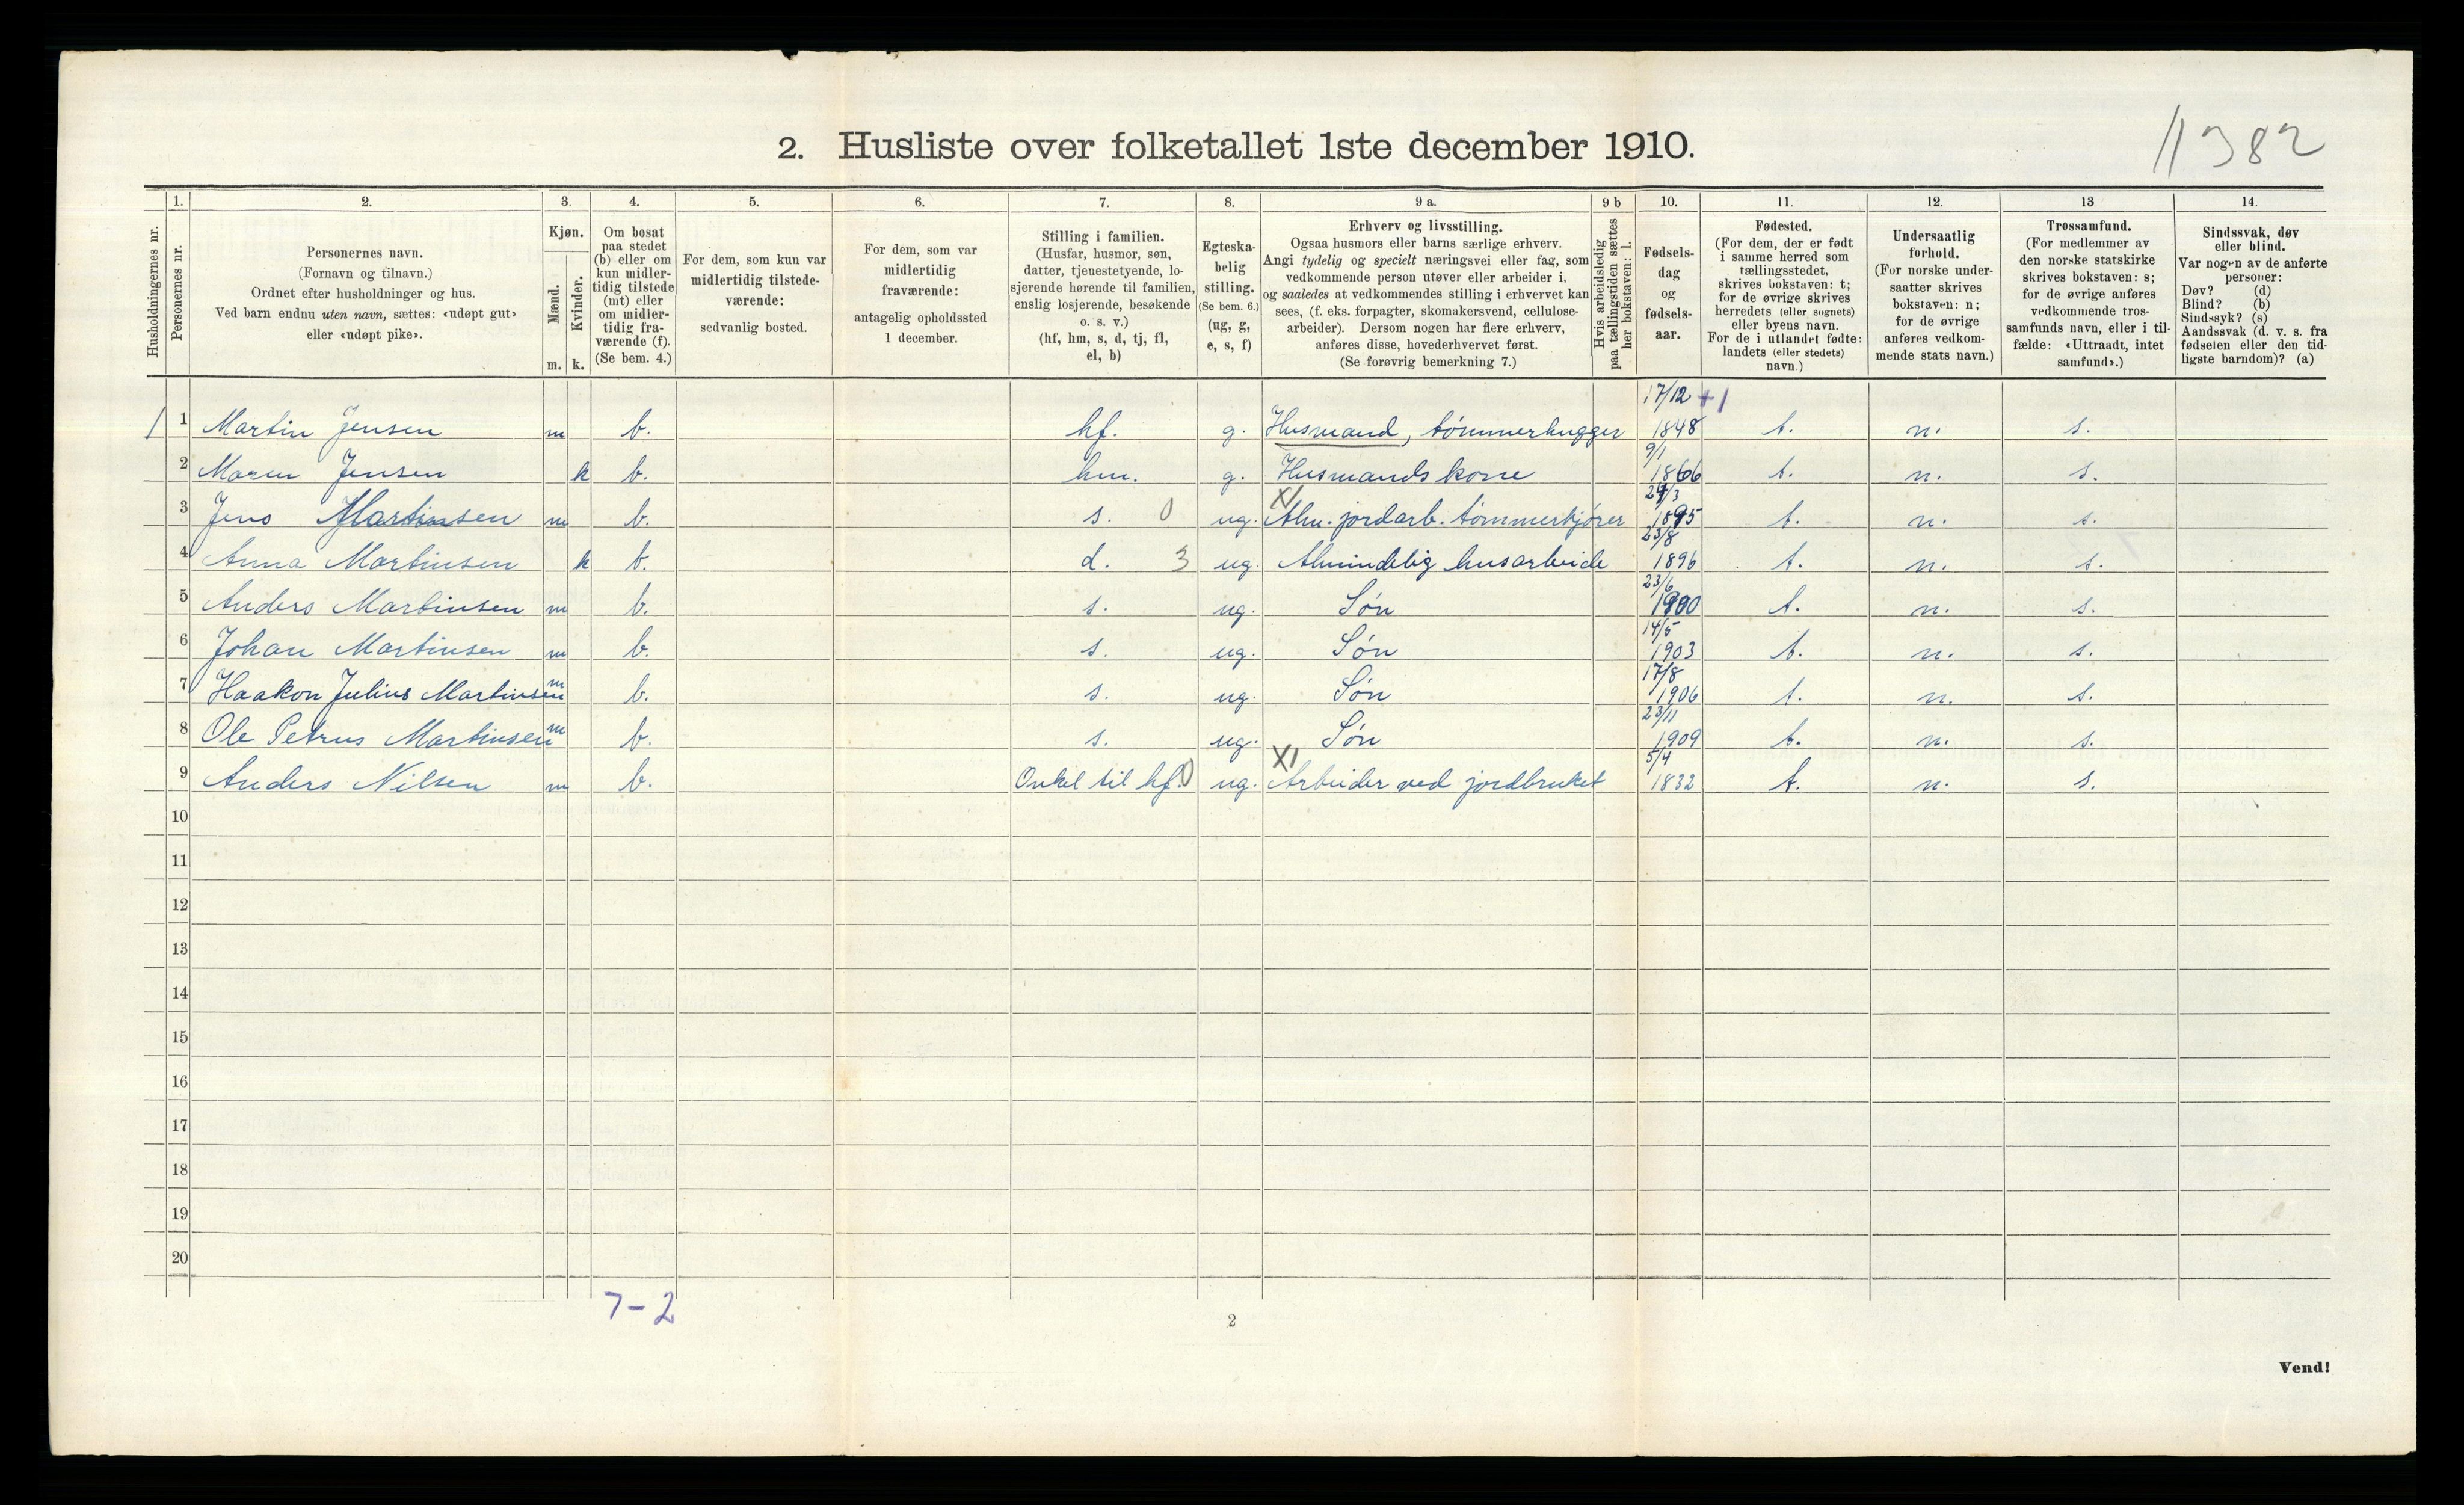 11382
2. Husliste over folketallet 1ste december 1910.
1. 2. 3. 4. 5. 6. 7. 8. 9 a. 9 b 10. 11. 12. 13 14.
Husholdningernes nr.
Personernes nr.
Personernes navn.
(Fornavn og tilnavn.)
Ordnet efter husholdninger og hus.
Ved barn endnu uten navn, sættes: «udøpt gut»
eller «udøpt pike».
Kjøn.
Mænd.
Kvinder.
m. k.
Om bosat
paa stedet
(b) eller om
kun midler-
tidig tilstede
(mt) eller
om midler-
tidig fra-
værende (f).
(Se bem. 4.)
For dem, som kun var
midlertidig tilstede-
værende:
sedvanlig bosted.
For dem, som var
midlertidig
fraværende:
antagelig opholdssted
1 december.
Stilling i familien.
(Husfar, husmor, søn,
datter, tjenestetyende, lo-
sjerende hørende til familien,
enslig losjerende, besøkende
o. s. v.)
(hf, hm, s, d, tj, fl,
el, b)
Egteska-
belig
stilling.
(Se bem. 6.)
(ug, g,
e, s, f)
Erhverv og livsstilling.
Ogsaa husmors eller barns særlige erhverv.
Angi tydelig og specielt næringsvei eller fag, som
vedkommende person utøver eller arbeider i,
og saaledes at vedkommendes stilling i erhvervet kan
sees, (f. eks. forpagter, skomakersvend, cellulose-
arbeider). Dersom nogen har flere erhverv,
anføres disse, hovederhvervet først.
(Se forøvrig bemerkning 7.)
Hvis arbeidsledig
paa tællingstiden sættes
her bokstaven: l.
Fødsels-
dag
og
fødsels-
aar.
Fødested.
(For dem, der er født
i samme herred som
tællingsstedet,
skrives bokstaven: t;
for de øvrige skrives
herredets (eller sognets)
eller byens navn.
For de i utlandet fødte:
landets (eller stedets)
navn.)
Undersaatlig
forhold.
(For norske under-
saatter skrives
bokstaven: n;
for de øvrige
anføres vedkom-
mende stats navn.)
Trossamfund.
(For medlemmer av
den norske statskirke
skrives bokstaven: s;
for de øvrige anføres
vedkommende tros-
samfunds navn, eller i til-
fælde: «Uttraadt, intet
samfund».)
Sindssvak, døv
eller blind.
Var nogen av de anførte
personer:
Døv? (d)
Blind? (b)
Sindssyk? (s)
Aandssvak (d. v. s. fra
fødselen eller den tid-
ligste barndom)? (a)
1 1 Martin Jensen m b. hf. g. Husmand, tømmerhugger 17/12 1848 +1 t. n. s.
2 Maren Jensen k b. hm. g. Husmandskone 9/1 1866 t. n. s.
3 Jens Martinsen m b. s. 0 ug. XI Alm. jordarb. tømmerkjører 1895 t. n. s.
4 Anna Martinsen k b. d. 3 ug. Almindelig husarbeide 23/8 1896 t. n. s.
5 Anders Martinsen m b. s. ug. Søn 23/6 1900 t. n. s.
6 Johan Martinsen m b. s. ug. Søn 14/5 1903 t. n. s.
7 Haakon Julius Martinsen m b. s. ug. Søn 17/8 1906 t. n. s.
8 Ole Petrus Martinsen m b. s. ug. Søn 23/11 1909 t. n. s.
9 Anders Nilsen m b. Onkel til hf. 0 ug. XI Arbeider ved jordbruket 5/4 1832 t. n. s.
10
11
12
13
14
15
16
17
18
19
20
7-2
2
Vend!